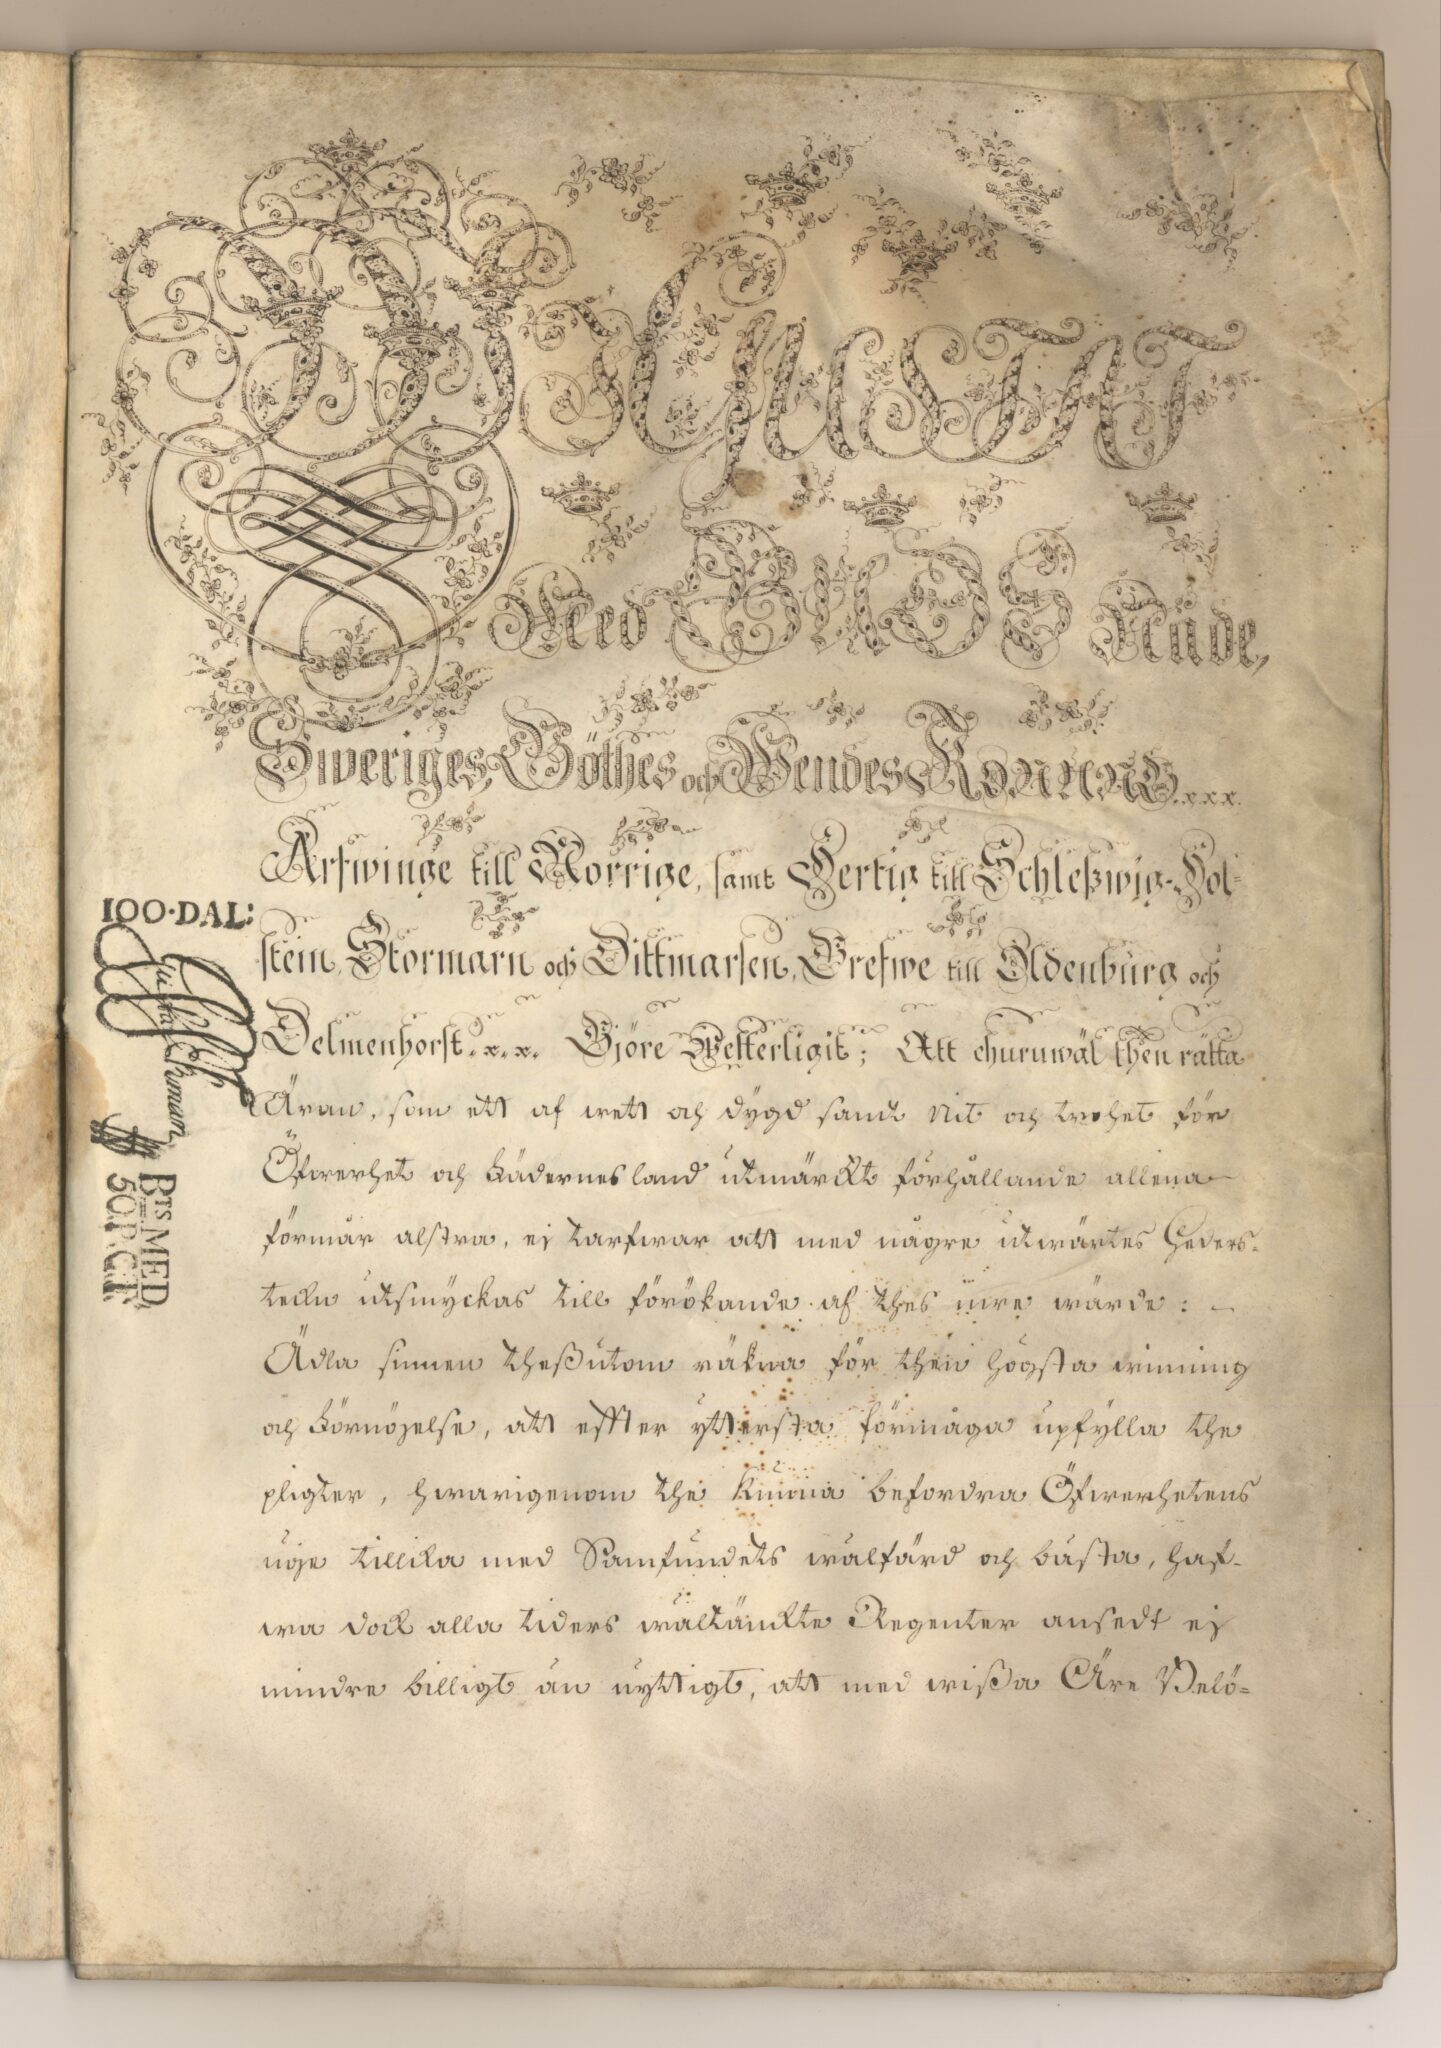 WJ GUSTAF
Med GUDS Nåde,
Sweriges, Göthes och Wendes KONUNG.x.x.x.
Arfwinge till Norrige, samt Hertig till Schleßwig-Hol-
stein, Stormarn och Dittmarsen, Grefwe till Oldenburg och
Delmenhorst.x.x. Gjöre Wetterligit; Att ehuruwäl then rätta
Äran, som ett af wett och dÿgd samt nit och trohet för
Öfwerhet och Fädernesland utmärckt förhållande allena
förmår alstra, ej tarfwar att med någre utwärtes Heders-
teckn utsmÿckas till förökande af thes inre wärde:
Ädla sinnen theßutom räkna för then högsta winning
och Förnöjelse, att effter ÿttersta förmåga upfÿlla the
pligter, hwarigenom the kunna befordra Öfwerhetens
nöje tillika med Samfundets wälfärd och bästa, haf-
wa dock alla tiders wältänckte Regenter ansedt ej
mindre billigt än nÿttigt, att med wißa Äre Belö-
100·DAL:
BTS MED.
50 P. CT.